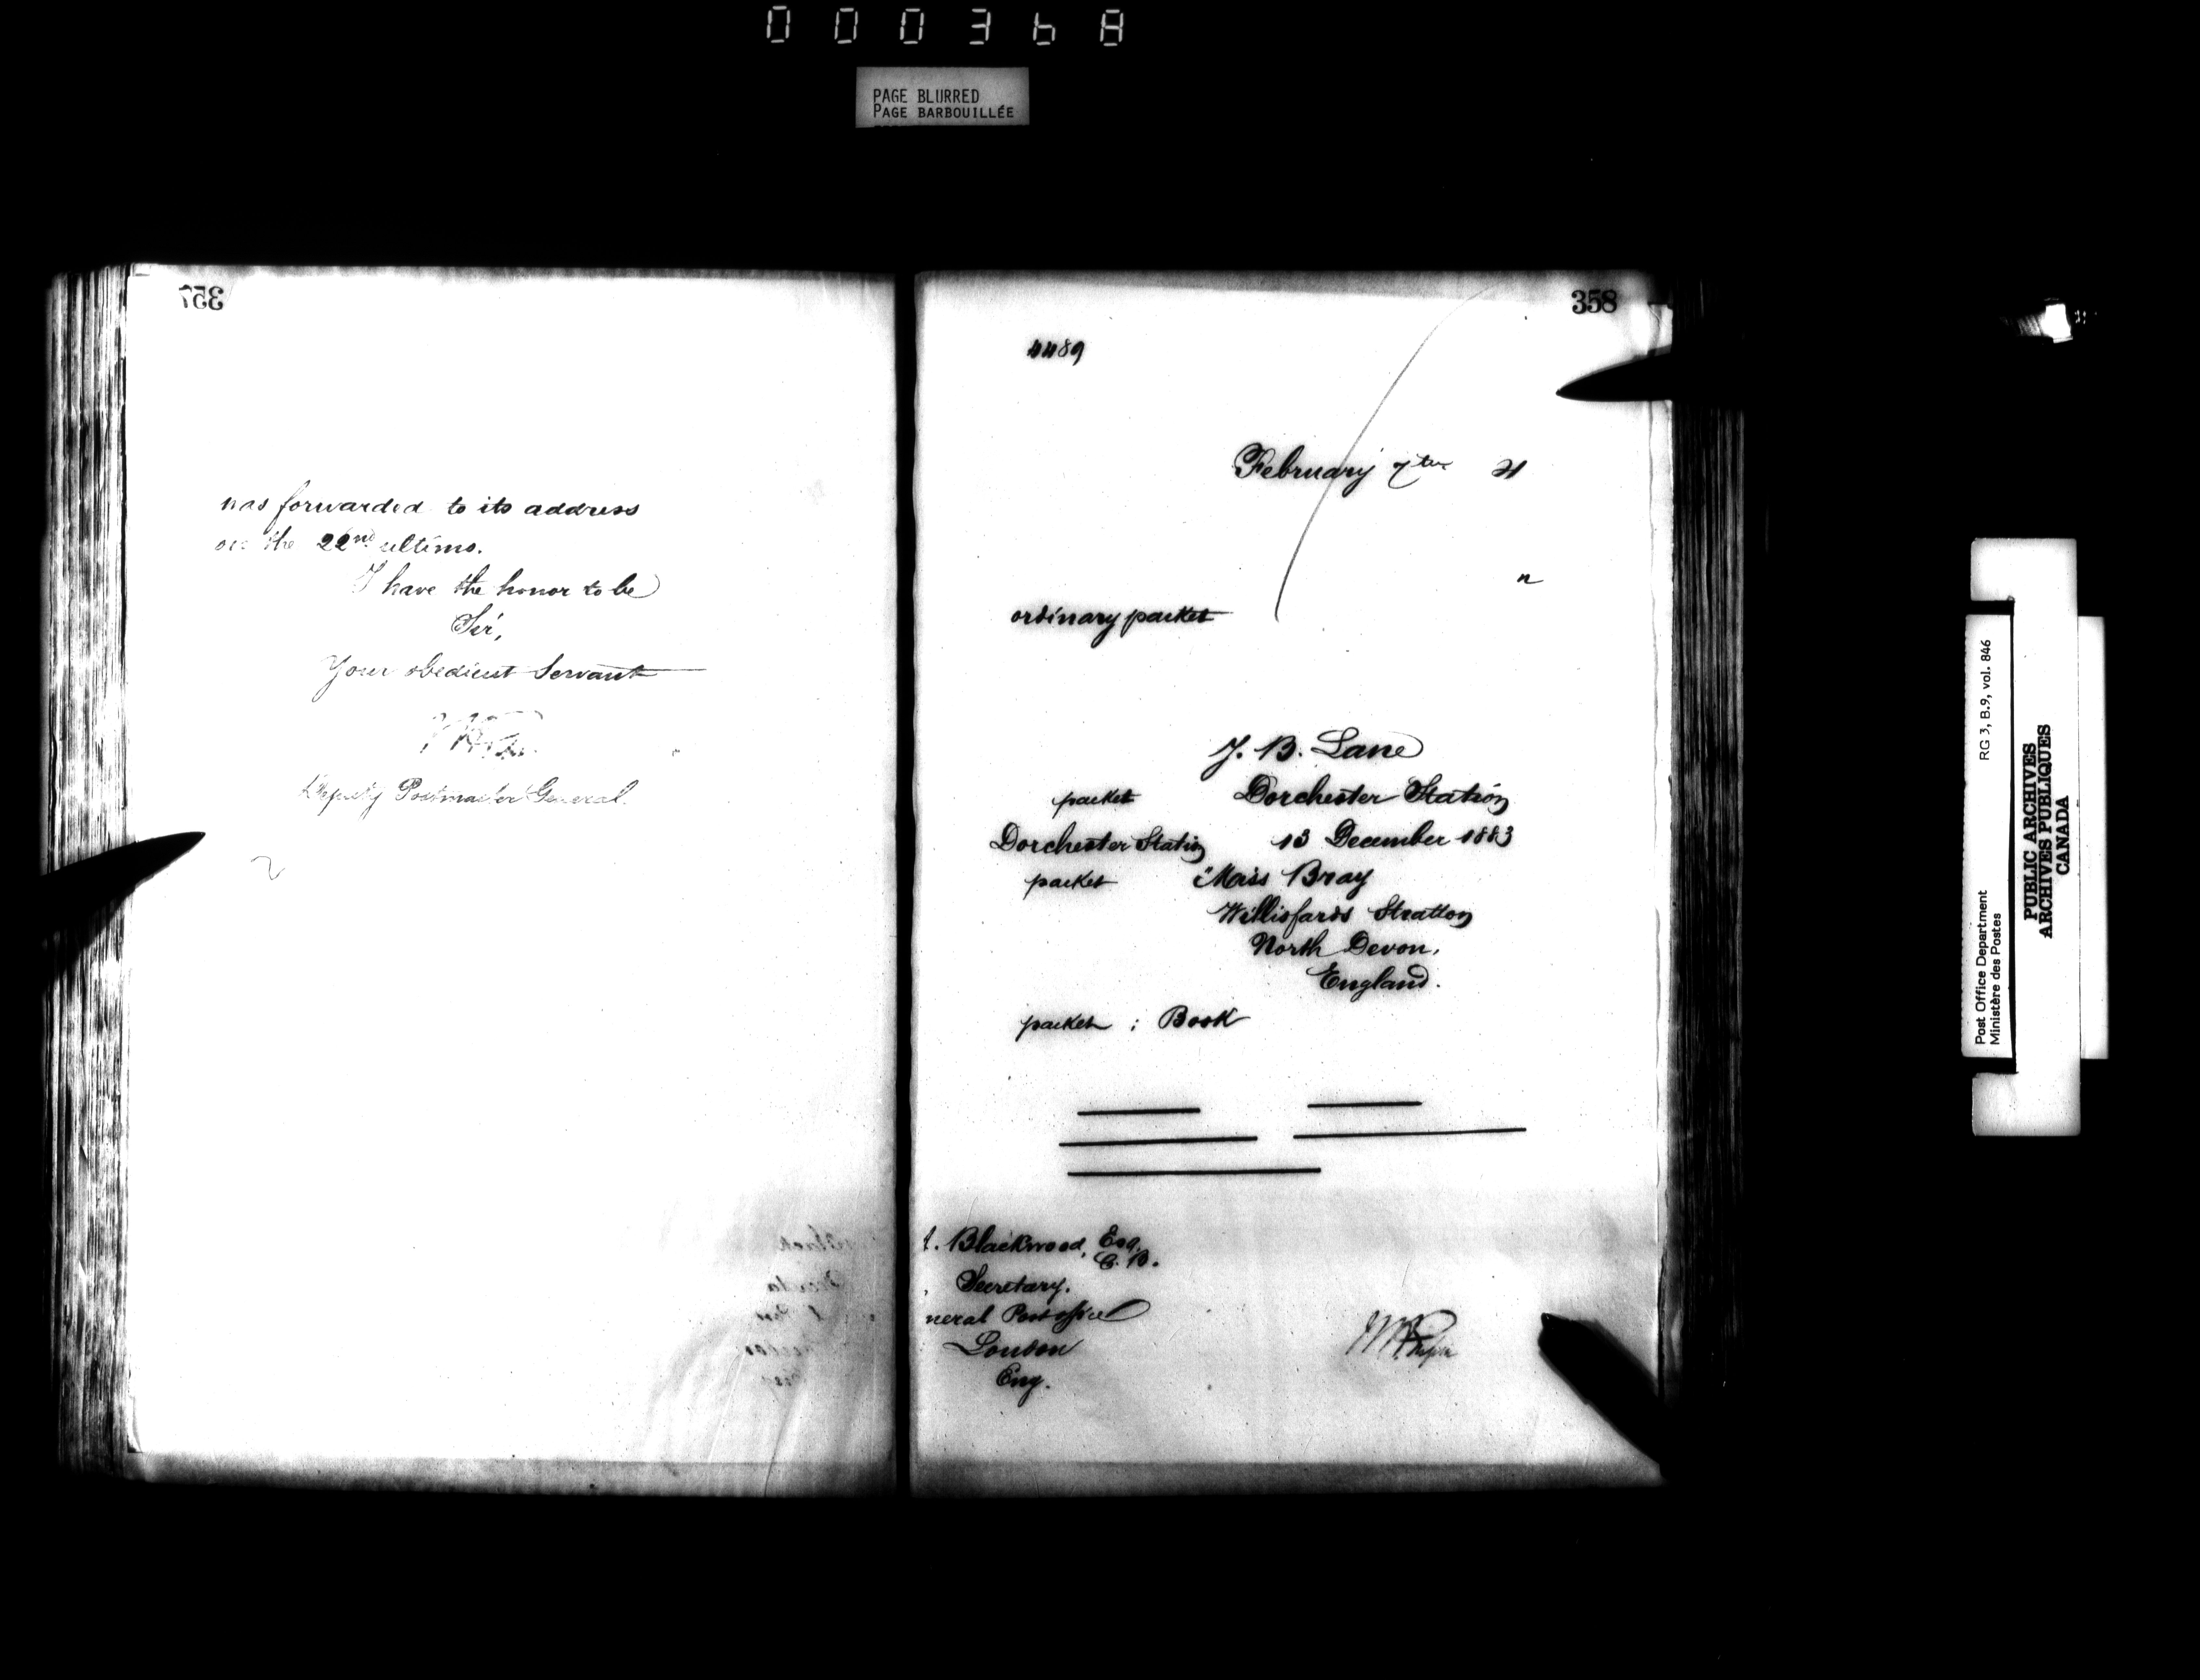 000368
PAGE BLURRED
PAGE BARBOUILLÉE
357
was forwarded to its address
on the 22nd ultimo.
I have the honor to be
Sir,
Your obedient Servant
Deputy Postmaster General.
358
4489
February 7th 4
n
ordinary packet
J. B. Lane
packet Dorchester Station
Dorchester Station 13 December 1883
packet "Miss Bray
Stratton
North Devon,
England.
packet ; Book
Blackwood, Esq.
C. B.
Secretary.
neral Post office
London
Eng.
Post Office Department RG 3, B.9, vol. 846
Ministère des Postes
PUBLIC ARCHIVES
ARCHIVES PUBLIQUES
CANADA